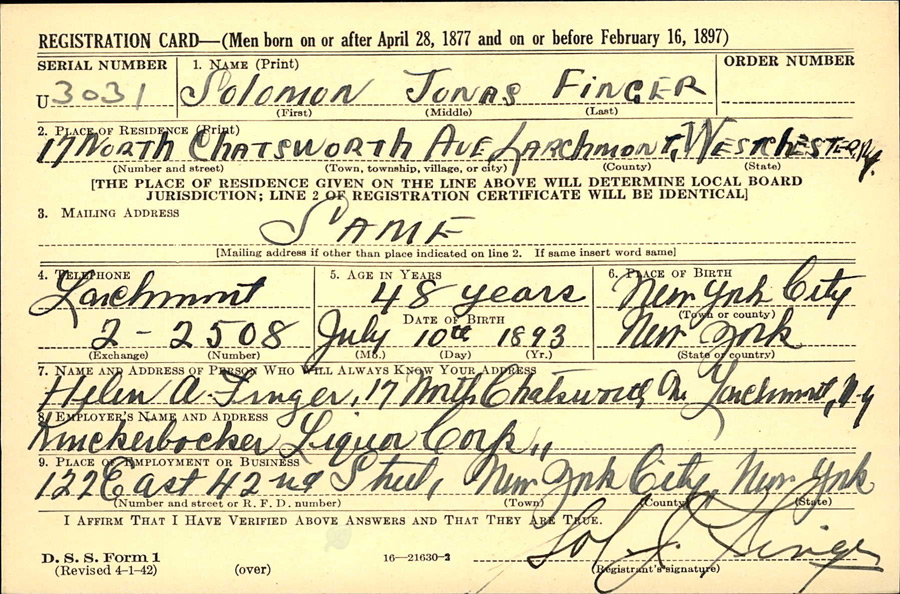 REGISTRATION CARD—(Men born on or after April 28, 1877 and on or before February 16, 1897)
SERIAL NUMBER 1. NAME (Print) ORDER NUMBER
U3031 SOLOMON JONAS FINGER
(First) (Middle) (Last)
2. PLACE OF RESIDENCE (Print)
17 NORTH CHATSWORTH AVE LARCHMONT, WESTCHESTER, N.Y.
(Number and street) (Town, township, village, or city) (County) (State)
[THE PLACE OF RESIDENCE GIVEN ON THE LINE ABOVE WILL DETERMINE LOCAL BOARD
JURISDICTION; LINE 2 OF REGISTRATION CERTIFICATE WILL BE IDENTICAL]
3. MAILING ADDRESS
SAME
[Mailing address if other than place indicated on line 2. If same insert word same]
4. TELEPHONE 5. AGE IN YEARS 6. PLACE OF BIRTH
Larchmont 48 years New York City
DATE OF BIRTH (Town or county)
2-2508 July 10th 1893 New York
(Exchange) (Number) (Mo.) (Day) (Yr.) (State or country)
7. NAME AND ADDRESS OF PERSON WHO WILL ALWAYS KNOW YOUR ADDRESS
Helen A. Finger, 17 North Chatsworth Ave Larchmont, N-Y
8. EMPLOYER'S NAME AND ADDRESS
Knickerbocker Liquor Corp.,
9. PLACE OF EMPLOYMENT OR BUSINESS
122 East 42nd Street, New York City, New York
(Number and street or R. F. D. number) (Town) (County) (State)
I AFFIRM THAT I HAVE VERIFIED ABOVE ANSWERS AND THAT THEY ARE TRUE.
Sol J. Finger
D. S. S. Form 1 16—21630-2
(Revised 4-1-42) (over) (Registrant's signature)